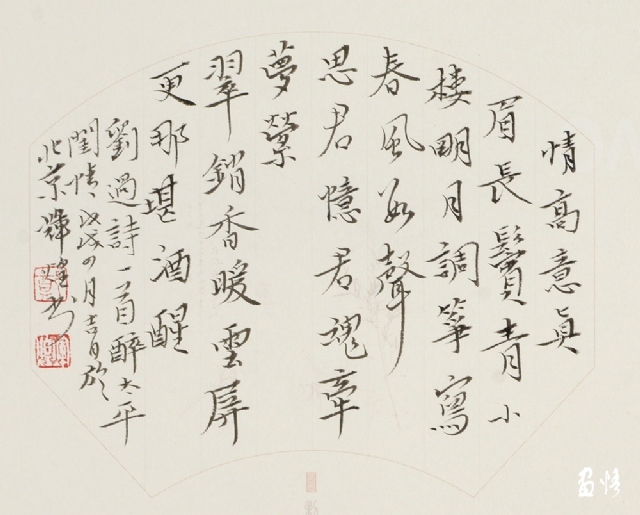 情高意真
眉長鬢青小
樓明月調箏寫
春風數聲
思君憶君魂牽
夢縈
翠銷香暖雲屏
更那堪酒醒
劉過詩一首醉太平
閨情戊戌四月吉日於
北京輝書